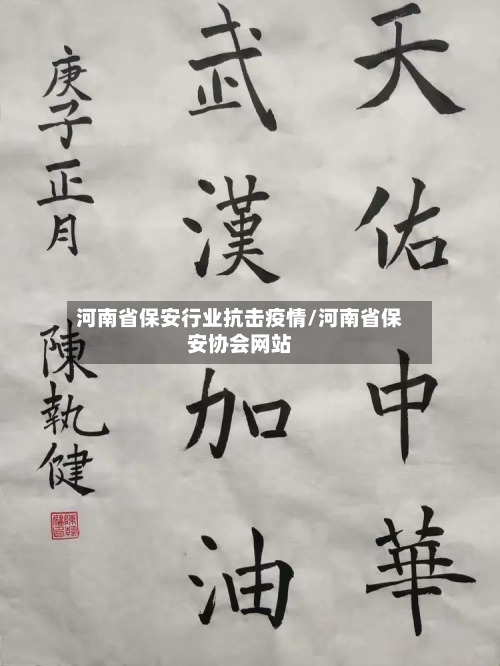 天佑中華
武漢加油
庚子正月
陳執健
河南省保安行业抗击疫情/河南省保
安协会网站